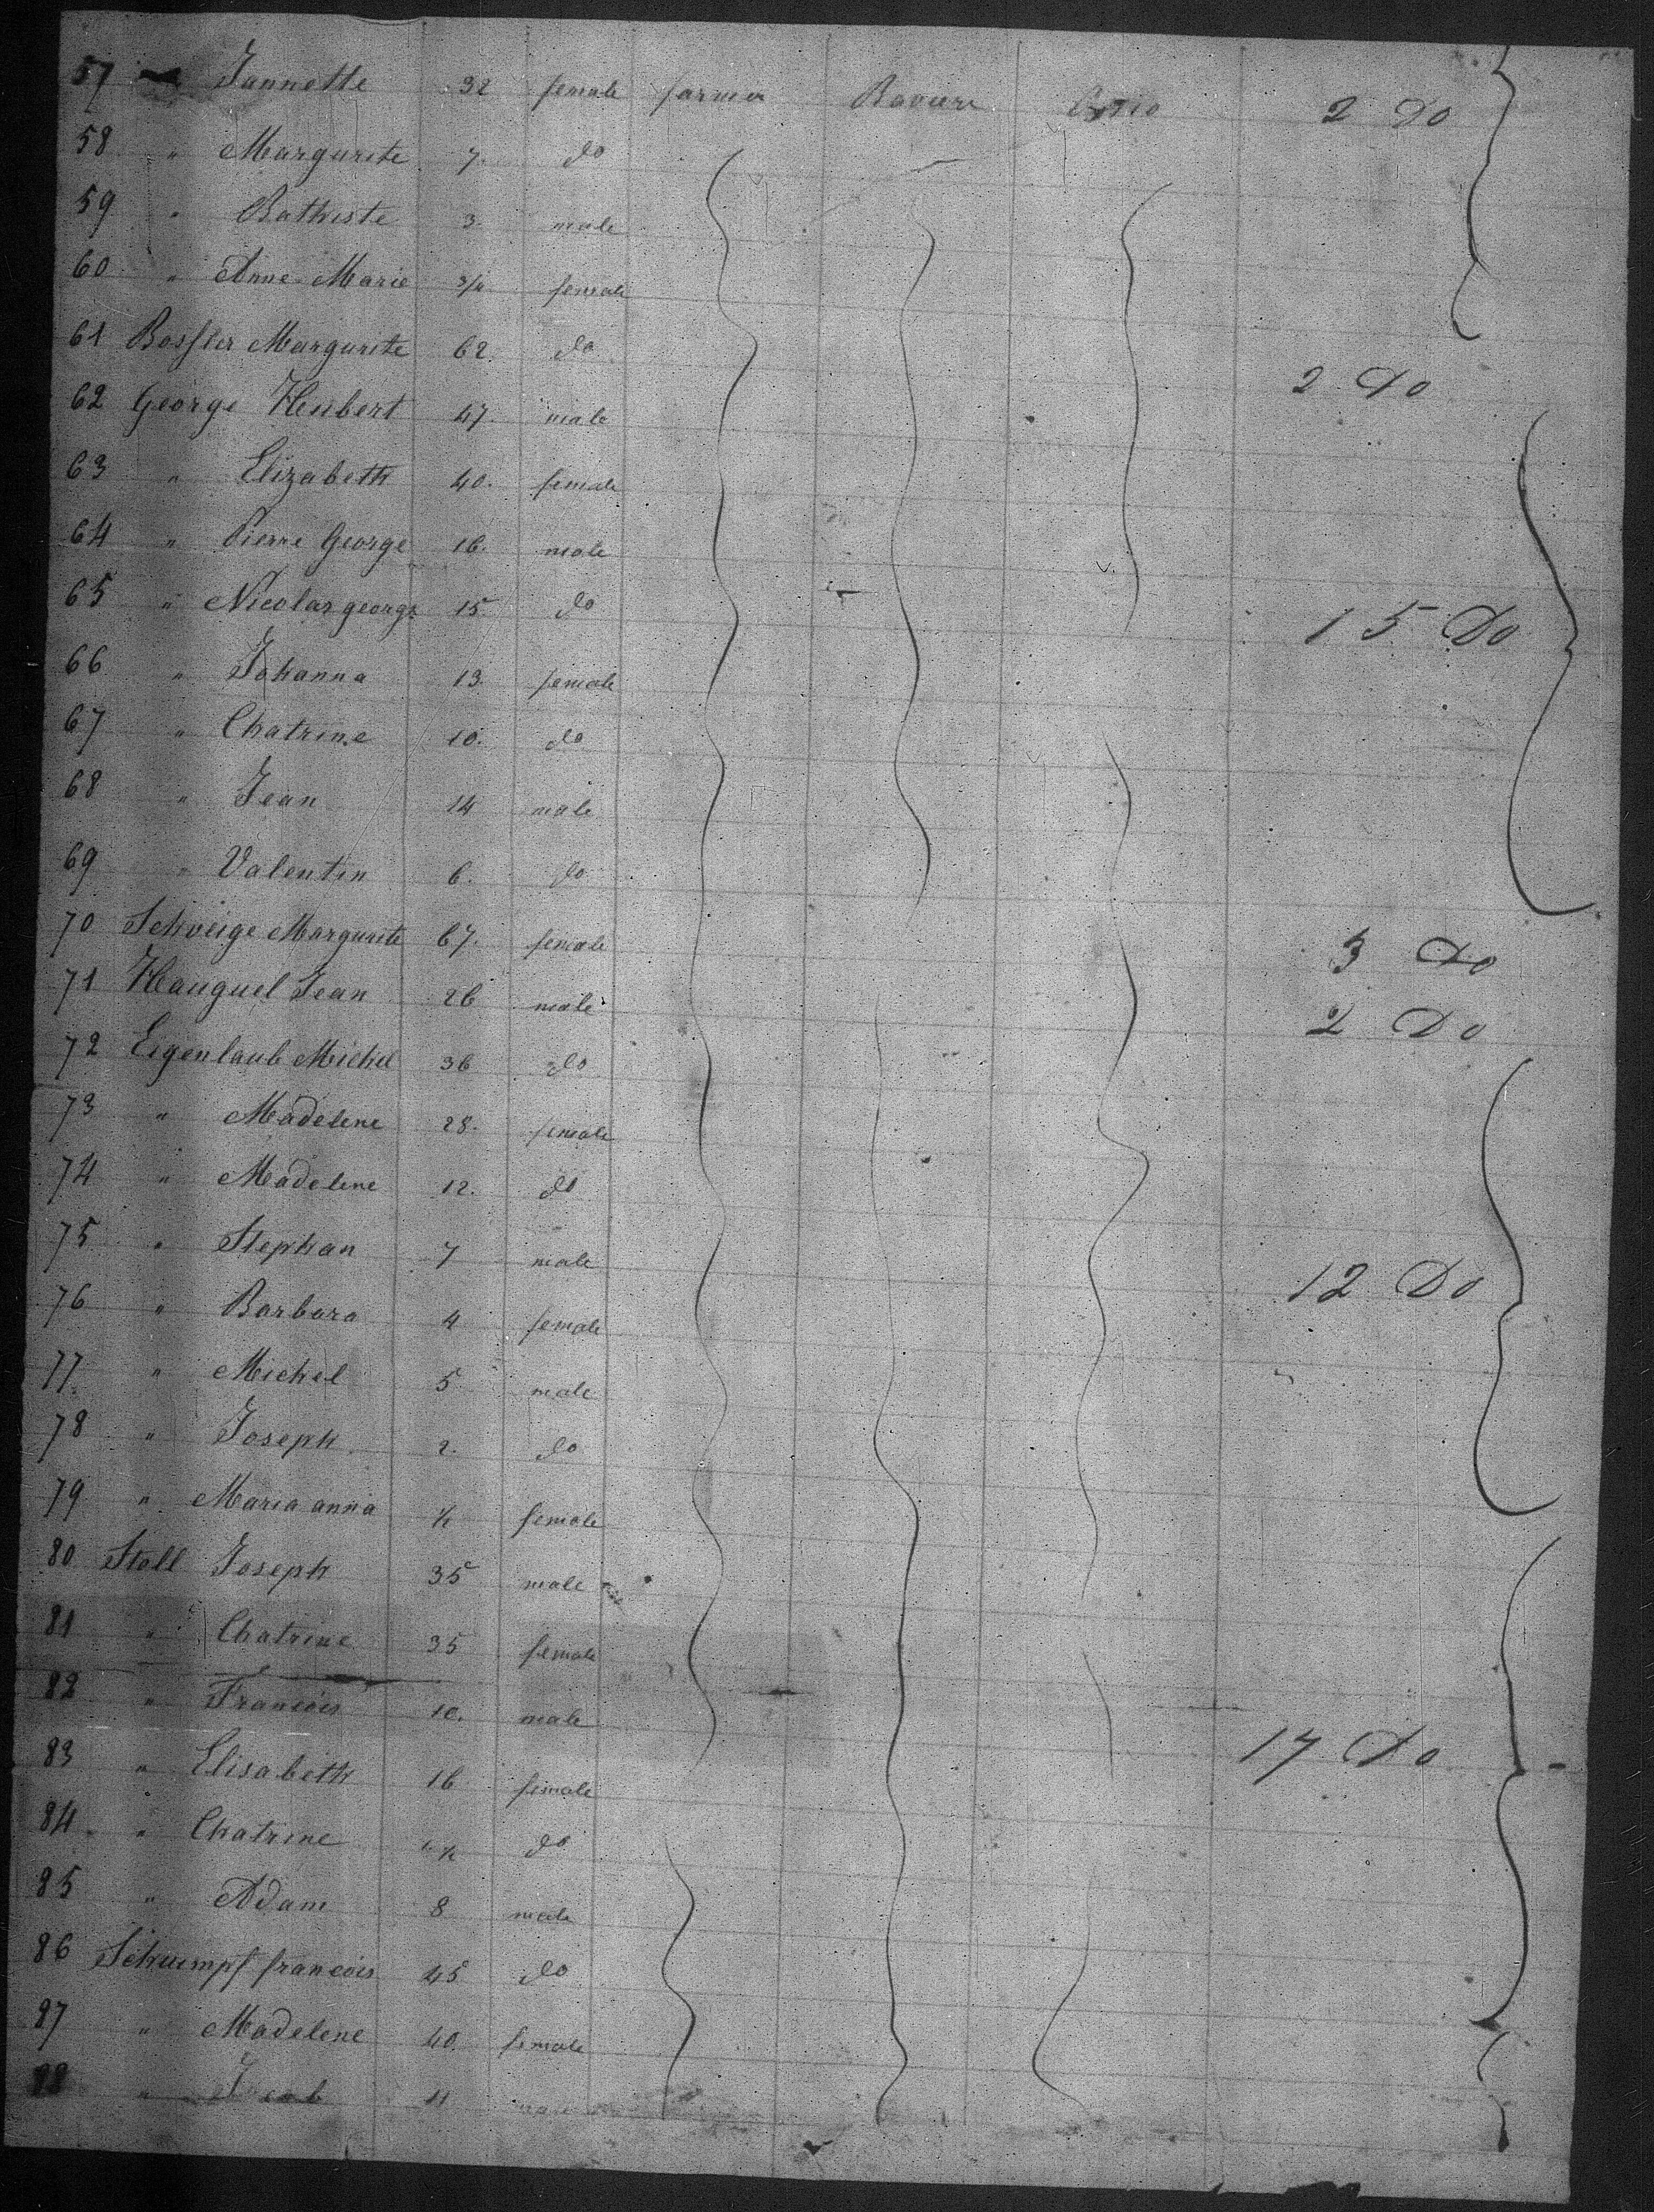 57 " Jannette 32 female farmer Baviere Ohio 2 Do
58 " Margurite 7. do
59 " Bathiste 3. male
60 " Anne Marie 3/4 female
61 Bossler Margurite 62. do 2 Do
62 George Hubert 47. male
63 " Elizabeth 40. female
64 " Pierre George 16. male
65 " Nicolas george 15 do 15 Do
66 " Johanna 13. female
67 " Chatrine 10. do
68 " Jean 14 male
69 " Valentin 6. do
70 Schveige Margurite 67. female 3 Do
71 Hauguel Jean 26 male 2 Do
72 Eigenlaub Michel 36 do
73 " Madelene 28. female
74 " Madelene 12. do
75 " Stephan 7 male 12 Do
76 " Barbara 4 female
77 " Michel 5 male
78 " Joseph 2. do
79 " Maria anna 1/2 female
80 Stoll Joseph 35 male
81 " Chatrine 35 female
82 " Francois 10. male
83 " Elisabeth 16 female 17 Do
84 " Chatrine 1/2 do
85 " Adam 8 male
86 Schumpf francois 45 do
87 " Madelene 40. female
88 " Jacob 11 male